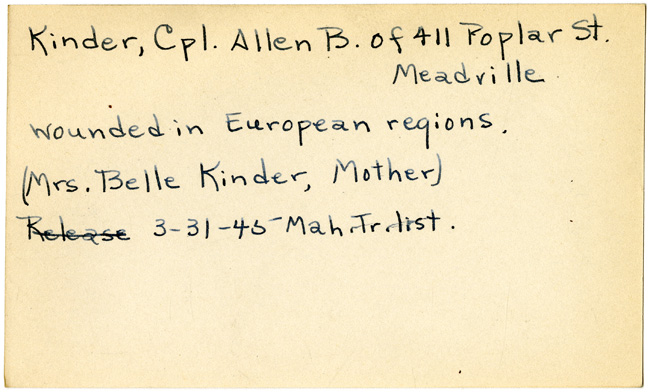 Kinder, Cpl. Allen B. of 411 Poplar St.
Meadville
wounded in European regions.
(Mrs. Belle Kinder, Mother)
Release 3-31-45 Mah.Tr.list.